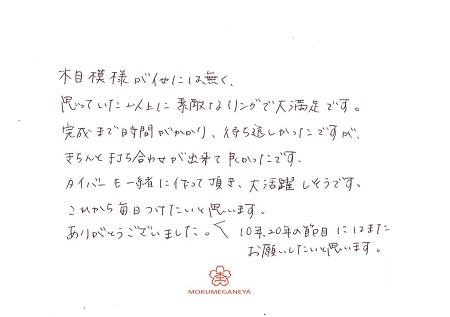 木目模様が他には無く、
思っていた以上に素敵なリングで大満足です。
完成まで時間がかかり、待ち遠しかったですが、
きちんと打ち合わせが出来て良かったです。
タイバーも一緒に作って頂き、大活躍しそうです。
これから毎日つけたいと思います。
ありがとうございました。
10年、20年の節目にはまた
お願いしたいと思います。
MOKUMEGANEYA